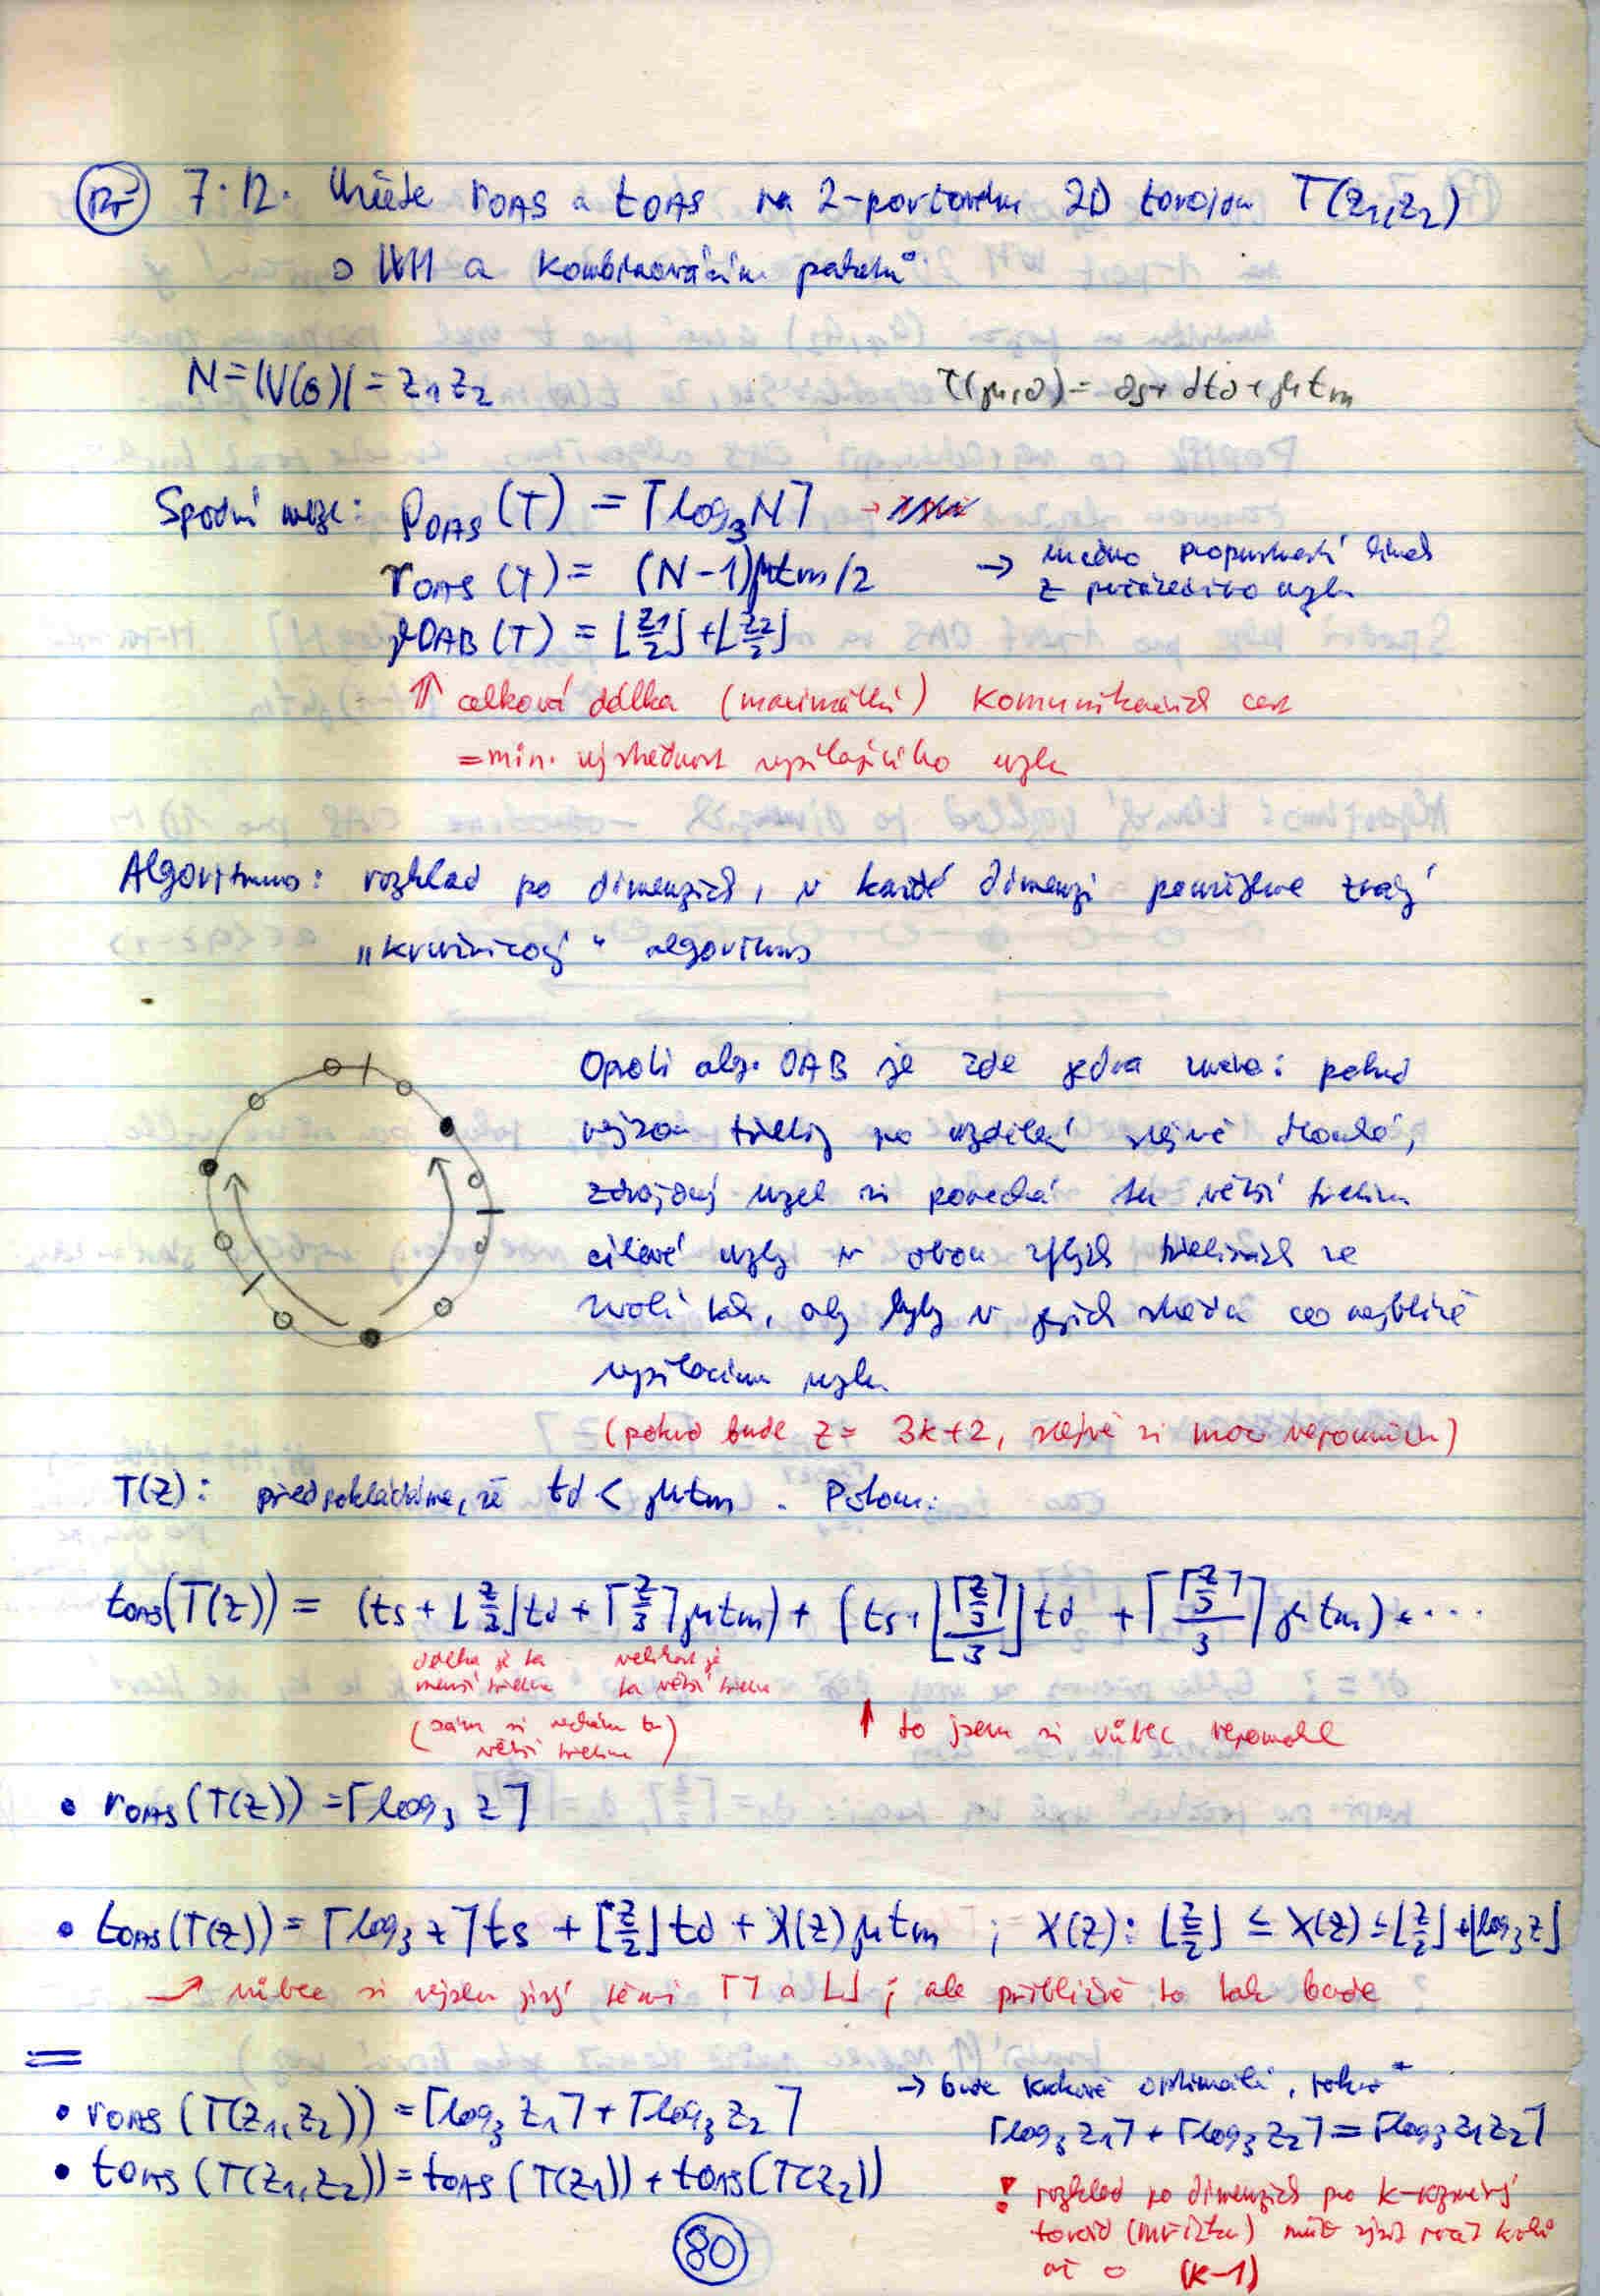 Př 7.12. Určete rOAS a tOAS na 2-portovém 2D toroidu T(z1,z2)
s WH a kombinováním paketů
N=|V(G)| = z1z2
τ(μ,d) = ts + dtd + μtm
Spodní meze: ρOAS(T) = ⌈log3N⌉ →
rOAS(T) = (N-1)μtm/2 → mezno propustností linek
z počátečního uzlu
γOAB(T) = ⌊z1/2⌋+⌊z2/2⌋
⇑ celková délka (maximální) komunikačních cest
= min. výstřednost vysílajícího uzlu
Algoritmus: rozklad po dimenzích, v každé dimenzi použijeme znalý
"kružnicový" algoritmus
Oproti alg. OAB je zde jedna změna: pokud
nejsou třetiny po rozdělení stejně dlouhé,
zdrojový uzel si ponechá tu větší třetinu
cílové uzly v obou zbylých třetinách se
volí tak, aby byly v jejich středu co nejblíže
vysílacímu uzlu
(pokud bude z = 3k+2, stejně si moc nepomůžu)
T(z): předpokládáme, že td < μtm . Potom:
tOAS(T(z)) = (ts + ⌊z/3⌋td + ⌈z/3⌉μtm) + (ts + ⌊⌈z/3⌉/3⌋td + ⌈⌈z/3⌉/3⌉μtm) + ...
délka je ta velikost je
menší třetina ta větší třetina
(sám si nechám tu
větší třetinu)
↑ to jsem si vůbec nepomohl
• rOAS(T(z)) = ⌈log3 z⌉
• tOAS(T(z)) = ⌈log3 z⌉ts + ⌊z/2⌋td + X(z)μtm ; X(z): ⌊z/2⌋ ≤ X(z) ≤ ⌊z/2⌋+⌊log3z⌋
→ vůbec si nejsem jistý těmi ⌈⌉ a ⌊⌋ ; ale přibližně to tak bude
=
• rOAS(T(z1,z2)) = ⌈log3 z1⌉+⌈log3 z2⌉
→ bude krokově optimální, pokud
⌈log3 z1⌉+⌈log3 z2⌉=⌈log3 z1z2⌉
• tOAS(T(z1,z2)) = tOAS(T(z1)) + tOAS(T(z2))
! rozklad po dimenzích pro k-rozměrný
toroid (mřížku) může zvýšit počet kroků
až o (k-1)
80